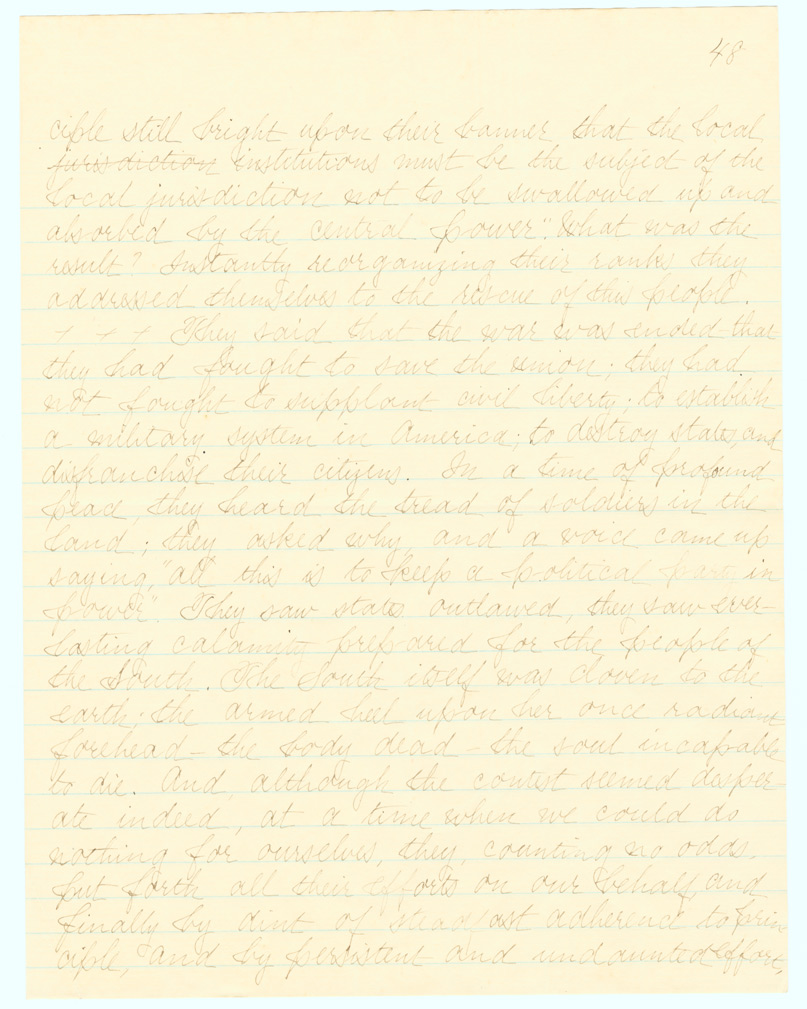 48
ciple still bright upon their banner that the local
jurisdiction institutions must be the subject of the
local jurisdiction not to be swallowed up and
absorbed by the central power". What was the
result? Instantly reorganizing their ranks they
addressed themselves to the rescue of this people.
+ + + They said that the war was ended that
they had fought to save the union; they had
not fought to supplant civil liberty; to establish
a military system in America; to destroy states, and
disfranchise their citizens. In a time of profound
peace, they heard the tread of soldiers in the
land; they asked why, and a voice came up
saying, "all this is to keep a political party in
power". They saw states outlawed, they saw ever-
lasting calamity prepared for the people of
the South. The South itself was cloven to the
earth; the armed heel upon her once radiant
forehead - the body dead - the soul incapable
to die. And, although the contest seemed desper-
ate indeed, at a time when we could do
nothing for ourselves, they, counting no odds,
put forth all their efforts on our behalf, and
finally by dint of steadfast adherence to prin
ciple, and by persistent and undaunted effort,